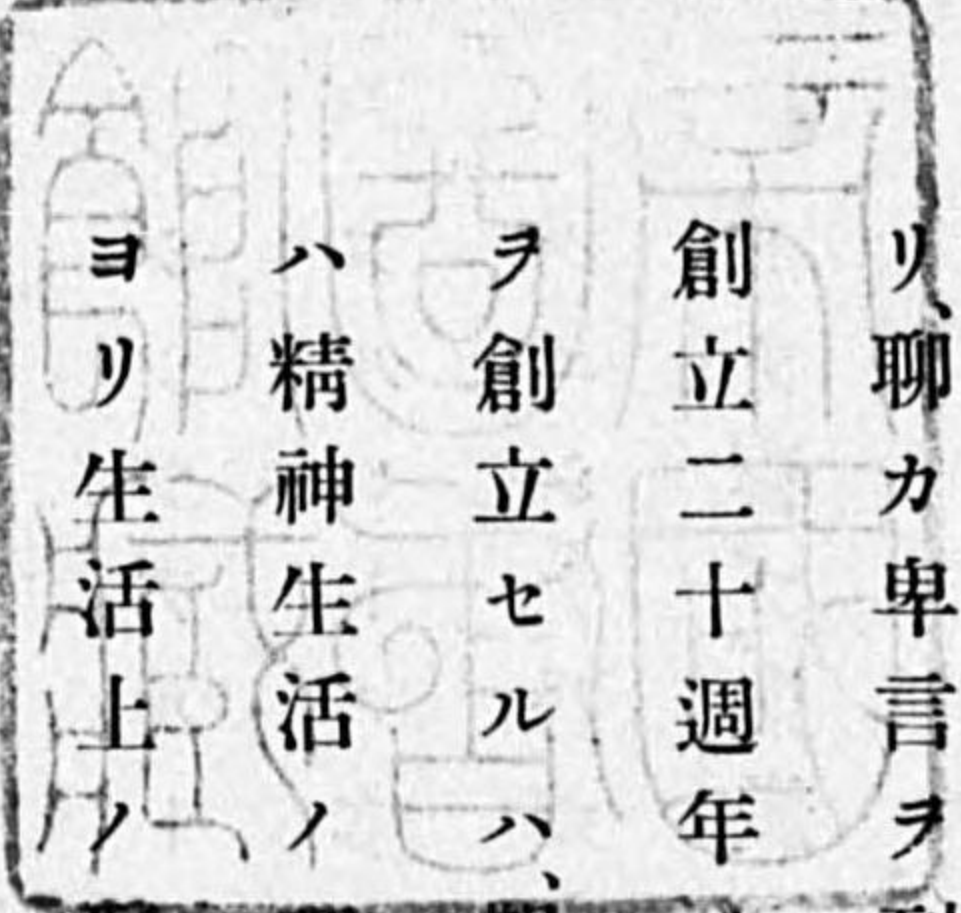 リ、聊カ卑言ヲ
創立二十週年
ヲ創立セルハ、
ハ精神生活ノ
ヨリ生活上ノ